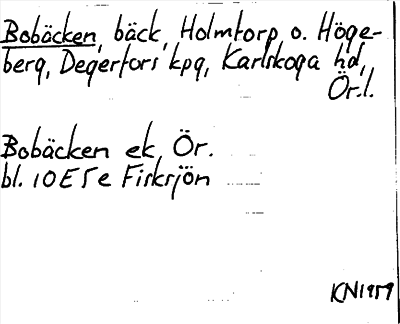 Bobäcken, bäck, Holmtorp o. Höge-
berg, Degerfors kpg, Karlskoga hd,
Ör.l.
Bobäcken ek, Ör.
bl. 10E5e Fisksjön
KN1959